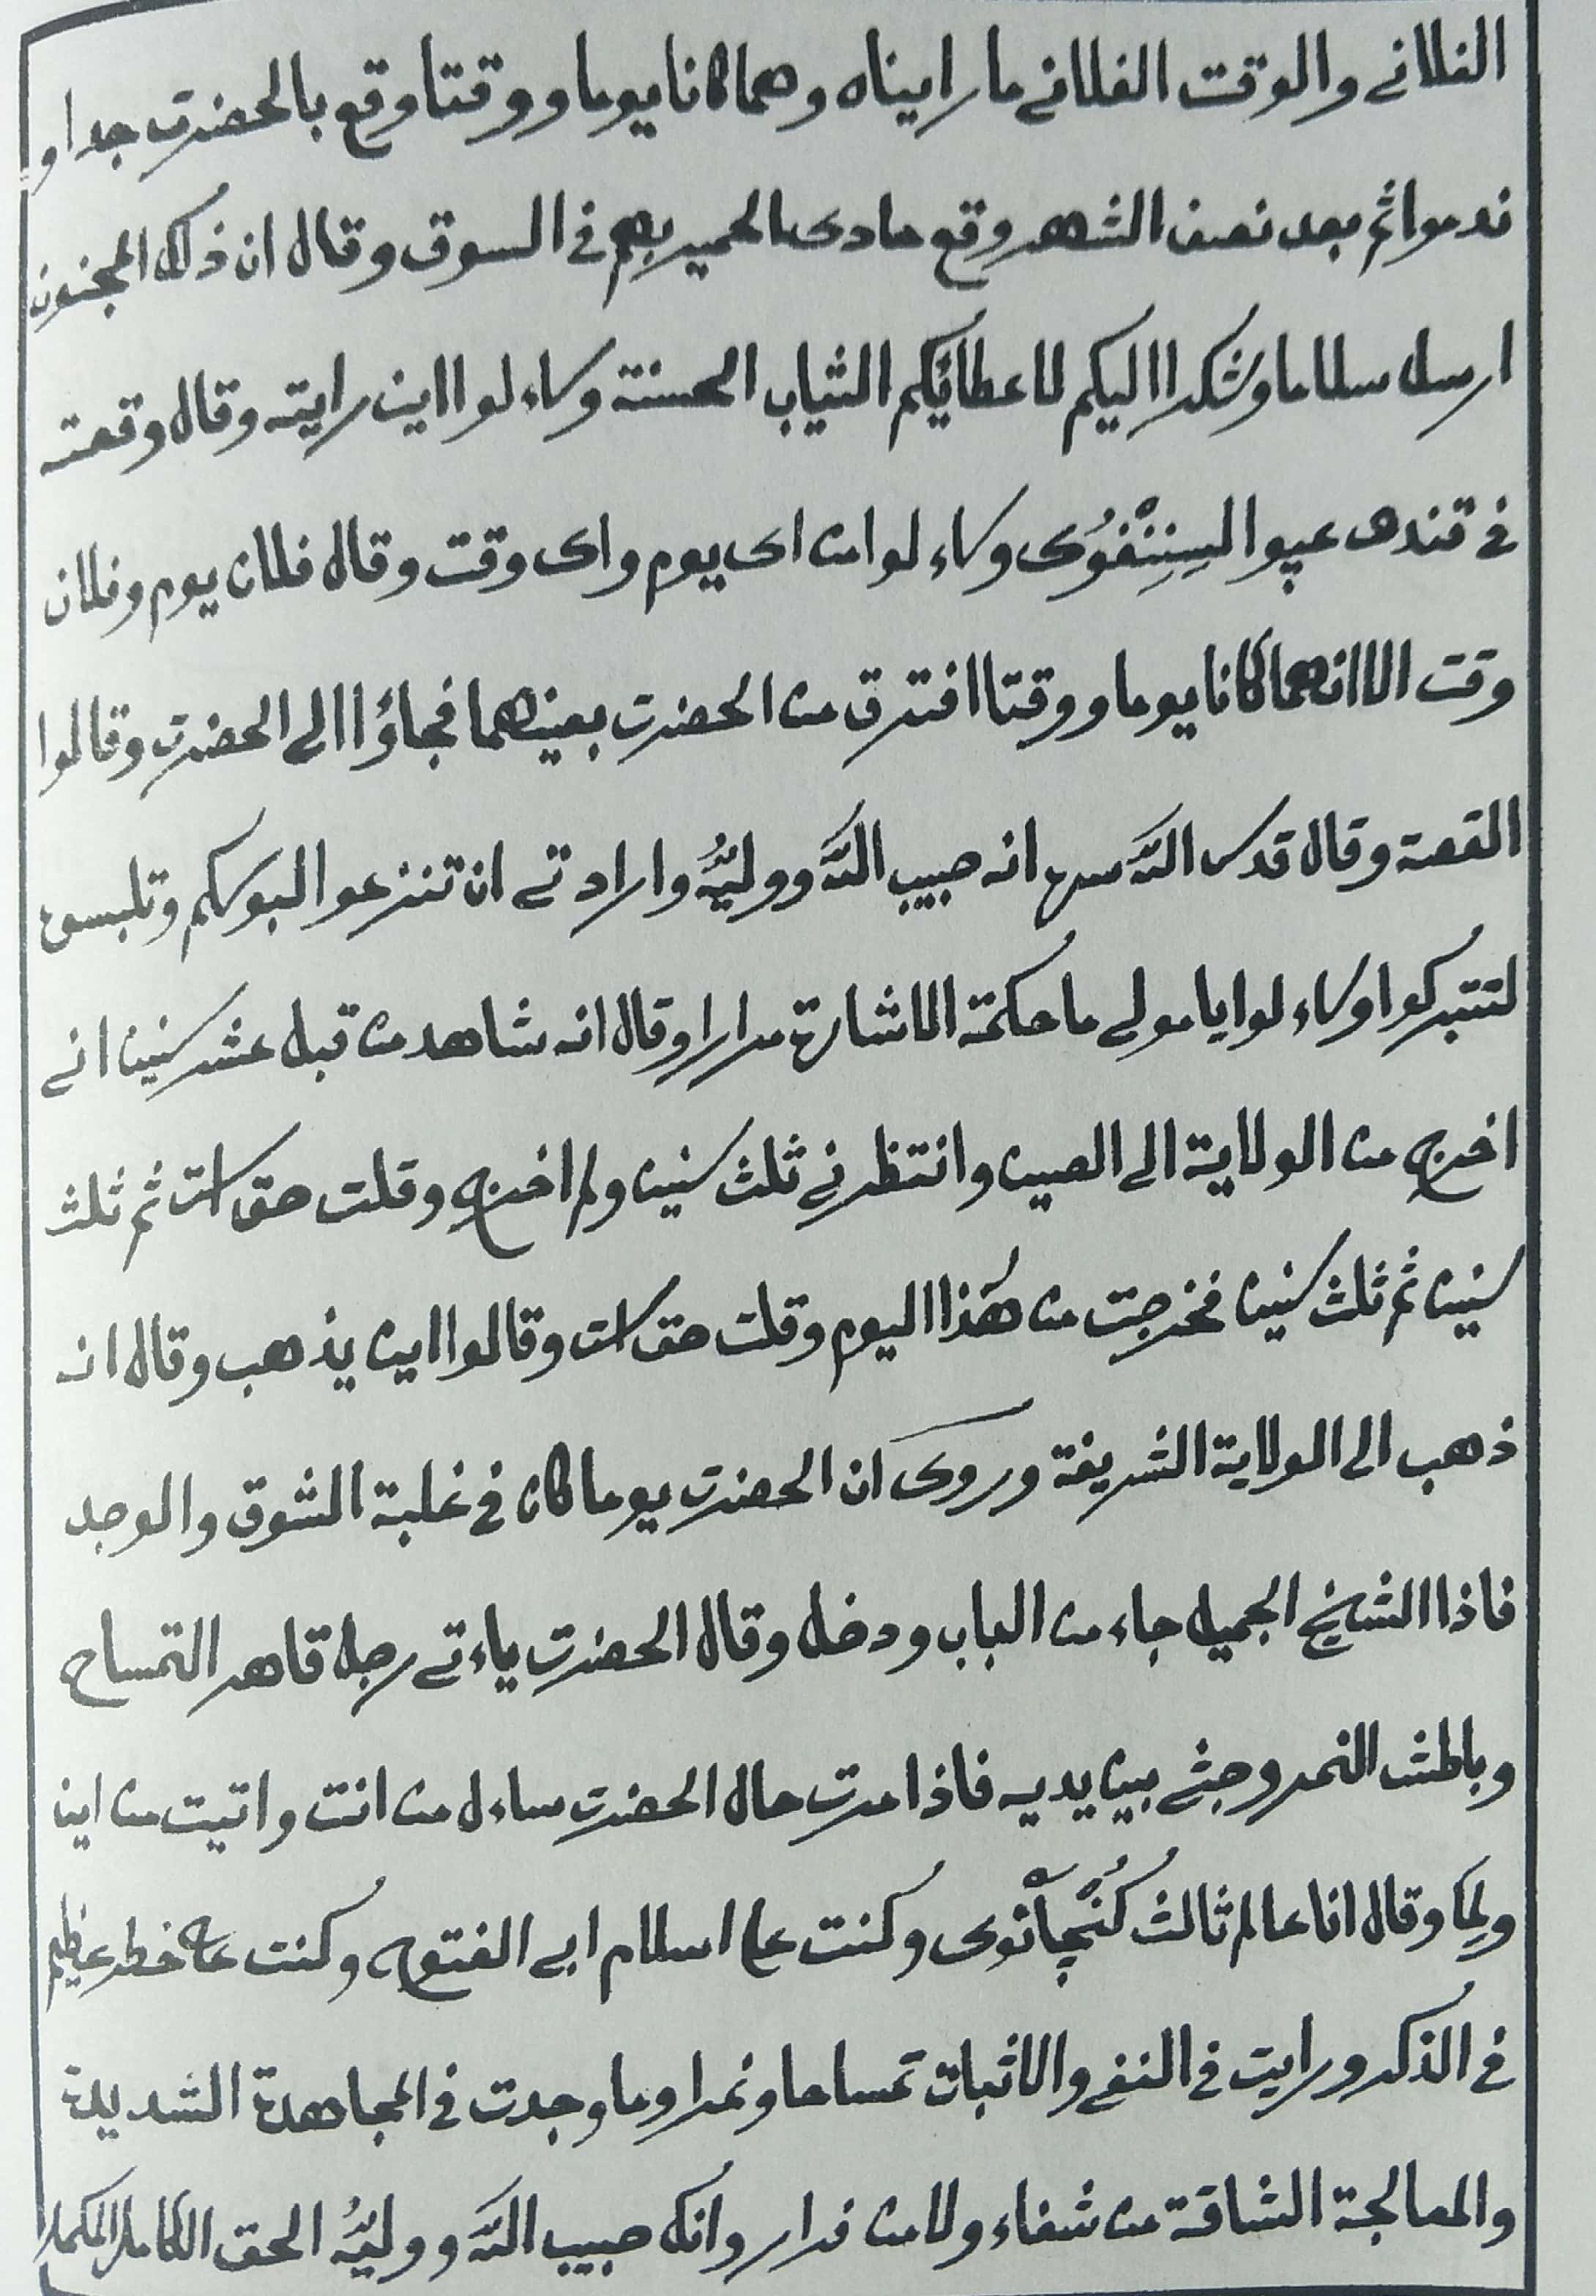 الفلانے والوقت الفلانے ما رايناه وهما كانا يوما ووقتا وقع بالحضرت جدا و
ندموا ثم بعد نصف الشهر وقع حادى الحمير بهم فى السوق وقال ان ذلك المجنون
ارسل سلاما وشكرا اليكم لاعطائكم الثياب الحسنة وساءلوا اين رايته وقال وقعته
فى قندهـ عپوا وساءلوا من اى يوم واى وقت وقال فلان يوم وفلان
وقت الا انهما كانا يوما ووقتا افترق من الحضرت بعينهما فجاؤا الى الحضرت وقالوا
القصة وقال قدس اللّه سره انه حبيب اللّه ووليُّه وارادتے ان تنزعوا لبوسكم وتلبسون
لتتبركوا وساءلوا يا مولے ما حكمة الاشارة مرارا وقال انه شاهد من قبل عشر سنين انے
اخرج من الولاية الى الصين وانتظرنے ثلث سنين ولم اخرج وقلت حق است ثم ثلث
سنين ثم ثلث سنين فخرجت من هٰذا اليوم وقلت حق است وقالوا اين يذهب وقال انه
ذهب الى الولاية الشريفة وروى ان الحضرت يوما كان فى غلبة الشوق والوجد
فاذا الشيخ الجميل جاء من الباب ودخل وقال الحضرت ياءتے رجل قاهر التمساح
وباطش النمر وجثے بين يديه فاذا مرت حال الحضرت ساءل من انت واتيت من اين
ولِمَا وقال انا عالم ثالث كُنْچِاْنْوى وكنت على اسلام ابى الفتوح وكنت على خطر عظيم
فى الذكر ورايت فى النفے والاثبات تمساحا ونمرا وما وجدت فى المجاهدة الشديدة
والمعالجة الشاقة من شفاء ولا من فرار وانك حبيب اللّه ووليُّه الحق الكامل المكمل